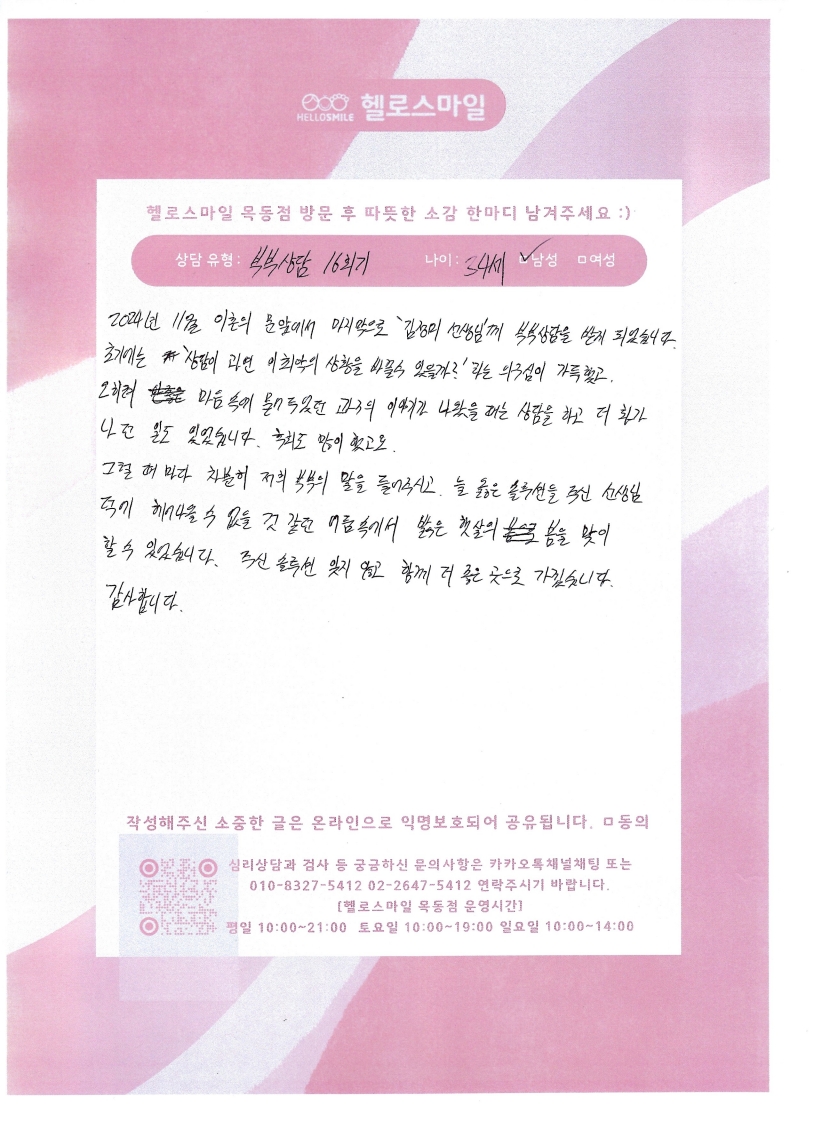 HELLOSMILE 헬로스마일
헬로스마일 목동점 방문 후 따뜻한 소감 한마디 남겨주세요 :)
상담 유형: 부부상담 16회기 나이: 34세 ☑남성 □여성
2024년 11월 이혼의 문앞에서 마지막으로 '김정미 선생님'께 부부상담을 받게 되었습니다.
초기에는 '상담이 과연 이 최악의 상황을 바꿀수 있을까?' 라는 의구심이 가득했고.
오히려 마음속에 묻어두었던 과거의 이야기가 나왔을 때는 상담을 하고 더 화가
나던 일도 있었습니다. 후회도 많이 했고요.
그럴 때 마다 차분히 저희 부부의 말을 들어주시고. 늘 옳은 솔루션을 주신 선생님
덕에 헤어나올 수 없을 것 같던 어둠속에서 밝은 햇살의 봄을 맞이
할 수 있었습니다. 주신 솔루션 잊지 않고 함께 더 좋은 곳으로 가겠습니다.
감사합니다.
작성해주신 소중한 글은 온라인으로 익명보호되어 공유됩니다. □동의
심리상담과 검사 등 궁금하신 문의사항은 카카오톡채널채팅 또는
010-8327-5412 02-2647-5412 연락주시기 바랍니다.
[헬로스마일 목동점 운영시간]
평일 10:00~21:00 토요일 10:00~19:00 일요일 10:00~14:00